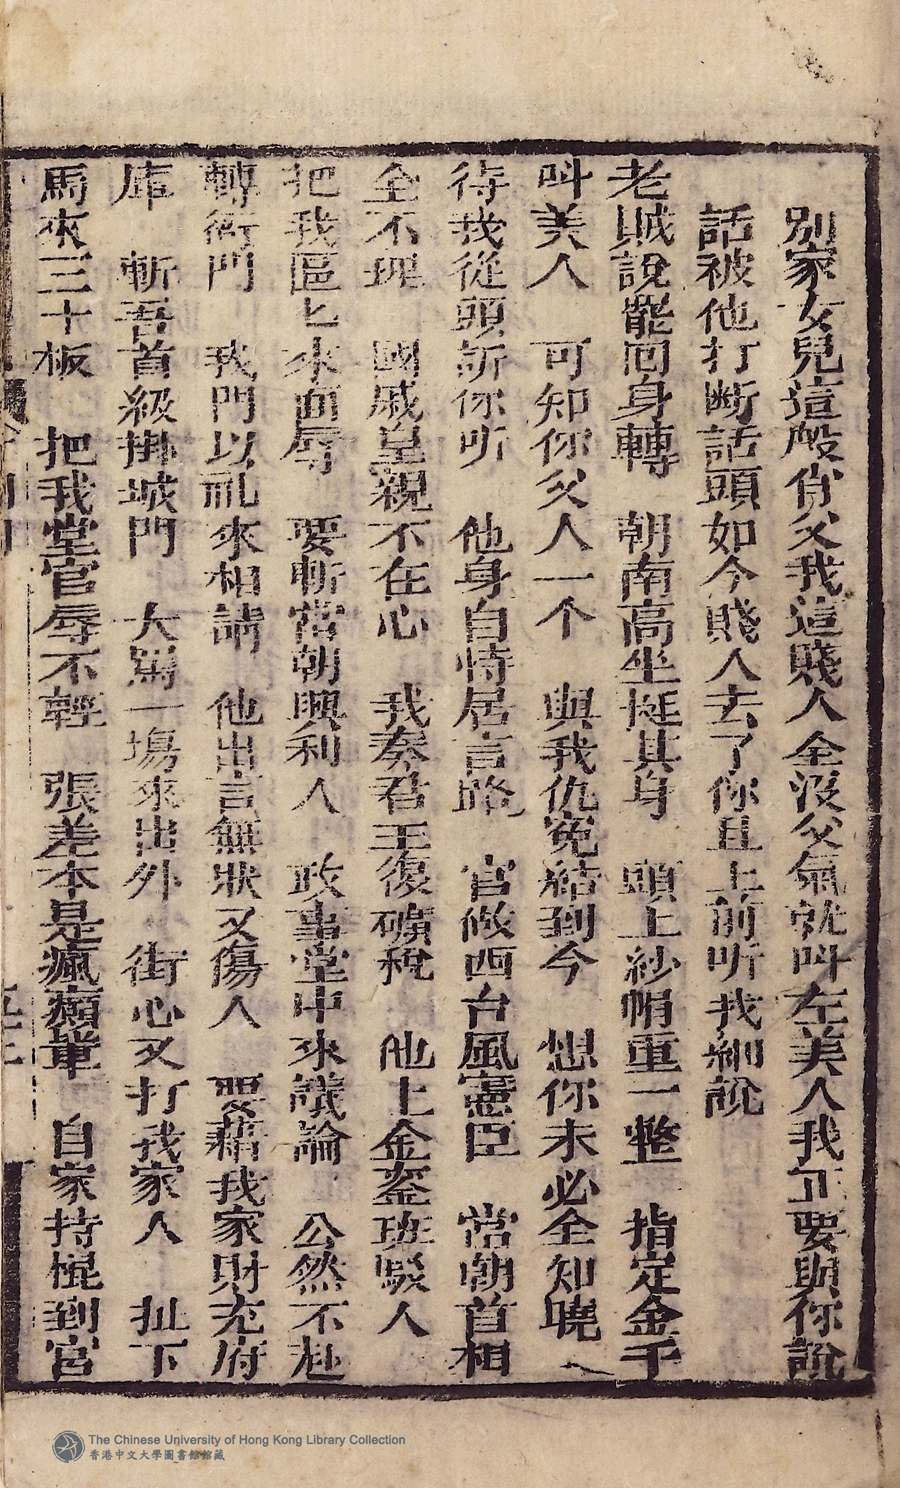 別家女兒這般肖父我這賤人全沒父氣就叫左美人我正要與你說
話被他打断話頭如今賤人去了你且上前听我細說
老賊說罷囘身轉　朝南高坐挺其身　頭上紗帽重一整　指定金手
叫美人　可知你父人一个　與我仇冤結到今　想你未必全知曉
待我從頭訴你听　他身自恃居言路　官做西台風憲臣　當朝首相
全不理　國戚皇親不在心　我奏君王復礦稅　他上金鑾班駁人
把我區匕來面辱　要斬當朝興利人　政事堂中來議論　公然不赴
轉衙門　我門以礼來相請　他出言無狀又傷人　要藉我家財充府
庫　斬吾首級掛城門　大罵一塲來出外　街心又打我家人　扯下
馬來三十板　把我堂官辱不輕　張差本是瘋癲輩　自家持棍到宮
The Chinese University of Hong Kong Library Collection
香港中文大學圖書館館藏